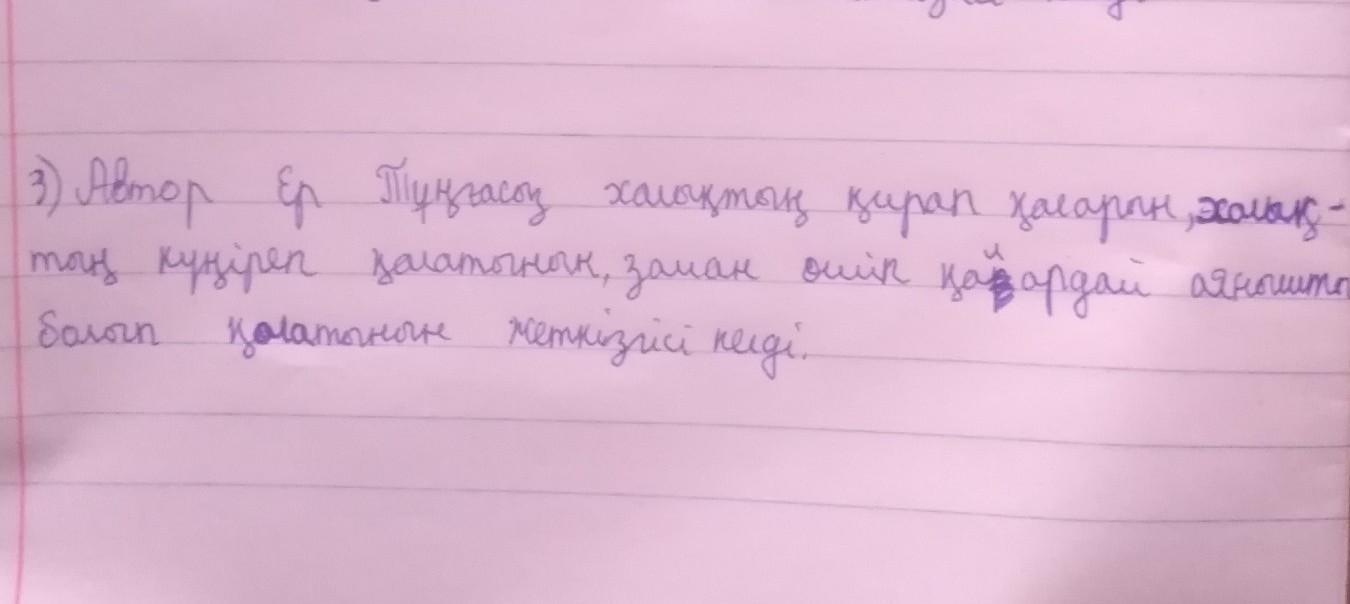 3) Автор Ер Тұңғасоң халықтың қирап қаларын, халық-
тың күңіреп қалатынын, заман өшіп қайардай аянышты
болып қалатынын жеткізгісі келді.